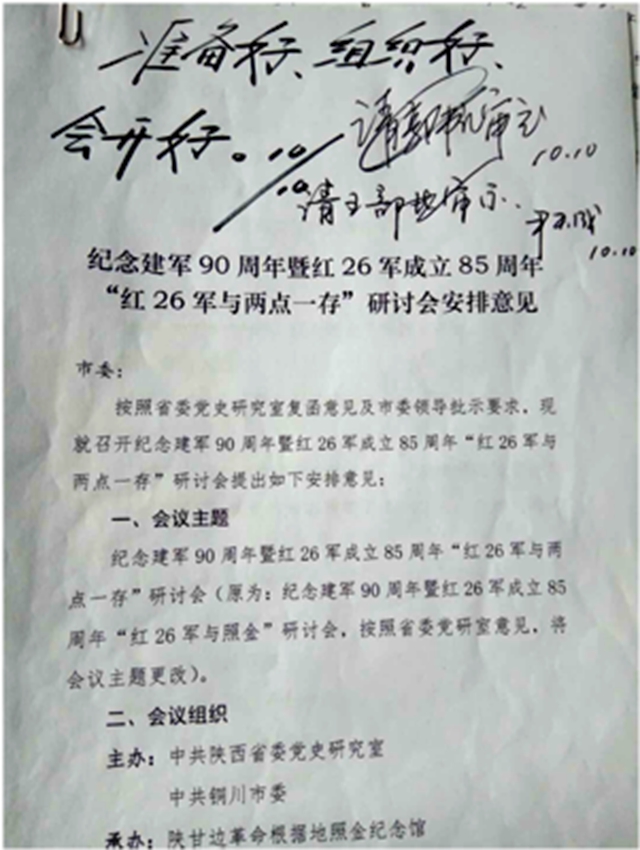 准备好、组织好、
会开好。10/10
请 审示
10.10
请王部长审示.
10.10
纪念建军90周年暨红26军成立85周年
“红26军与两点一存”研讨会安排意见
市委：
按照省委党史研究室复函意见及市委领导批示要求，现
就召开纪念建军90周年暨红26军成立85周年“红26军与
两点一存”研讨会提出如下安排意见：
一、会议主题
纪念建军90周年暨红26军成立85周年“红26军与两
点一存”研讨会（原为：纪念建军90周年暨红26军成立85
周年“红26军与照金”研讨会，按照省委党研室意见，将
会议主题更改）。
二、会议组织
主办：中共陕西省委党史研究室
中共铜川市委
承办：陕甘边革命根据地照金纪念馆